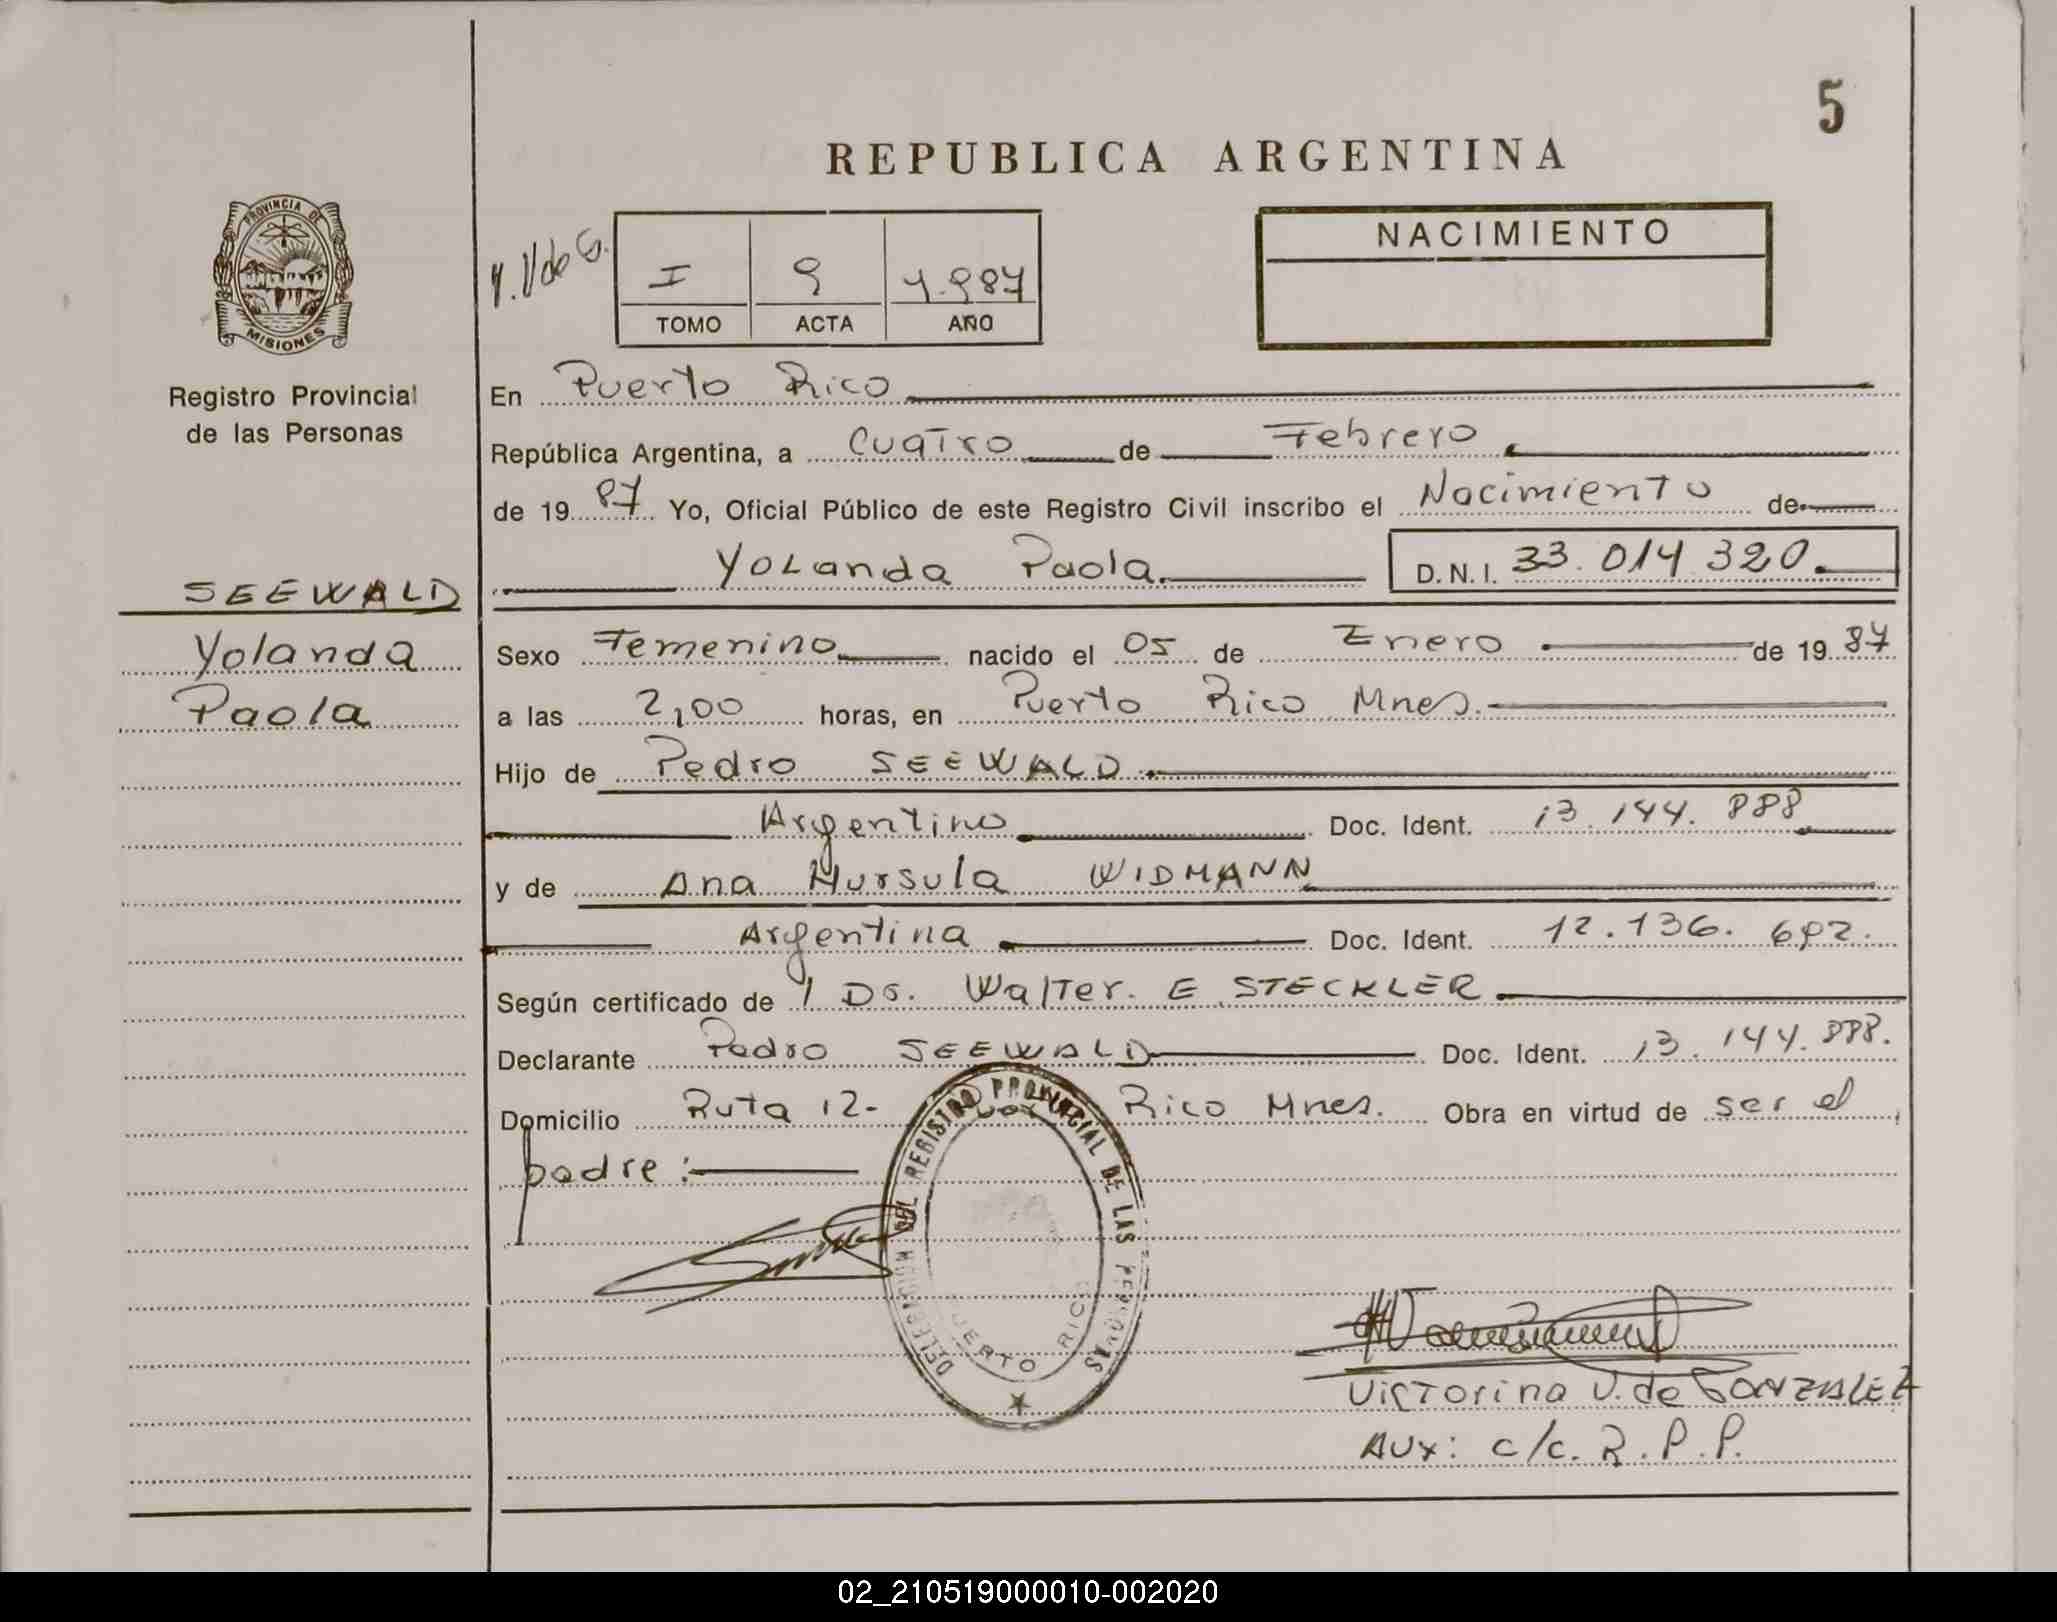 5
REPUBLICA ARGENTINA
PROVINCIA DE
MISIONES
Registro Provincial
de las Personas
V. de G.
I 9 1.987
TOMO ACTA AÑO
NACIMIENTO
En Puerto Rico
República Argentina, a Cuatro de Febrero
de 1987 Yo, Oficial Público de este Registro Civil inscribo el Nacimiento de
Yolanda Paola D.N.I. 33.014 320.
SEEWALD
Yolanda
Paola
Sexo Femenino nacido el 05 de Enero de 1987
a las 2,00 horas, en Puerto Rico Mnes.
Hijo de Pedro SEEWALD
Argentino Doc. Ident. 13.144.888
y de Ana Hursula WIDMANN
Argentina Doc. Ident. 12.136.692.
Según certificado de Dr. Walter. E STECKLER
Declarante Pedro SEEWALD Doc. Ident. 13.144.888.
Domicilio Ruta 12- Rico Mnes. Obra en virtud de ser el
padre:
DELEGACION DEL REGISTRO PROVINCIAL DE LAS PERSONAS
PUERTO RICO
Victorina V. de GONZALEZ
Aux: c/c. R.P.P.
02_210519000010-002020